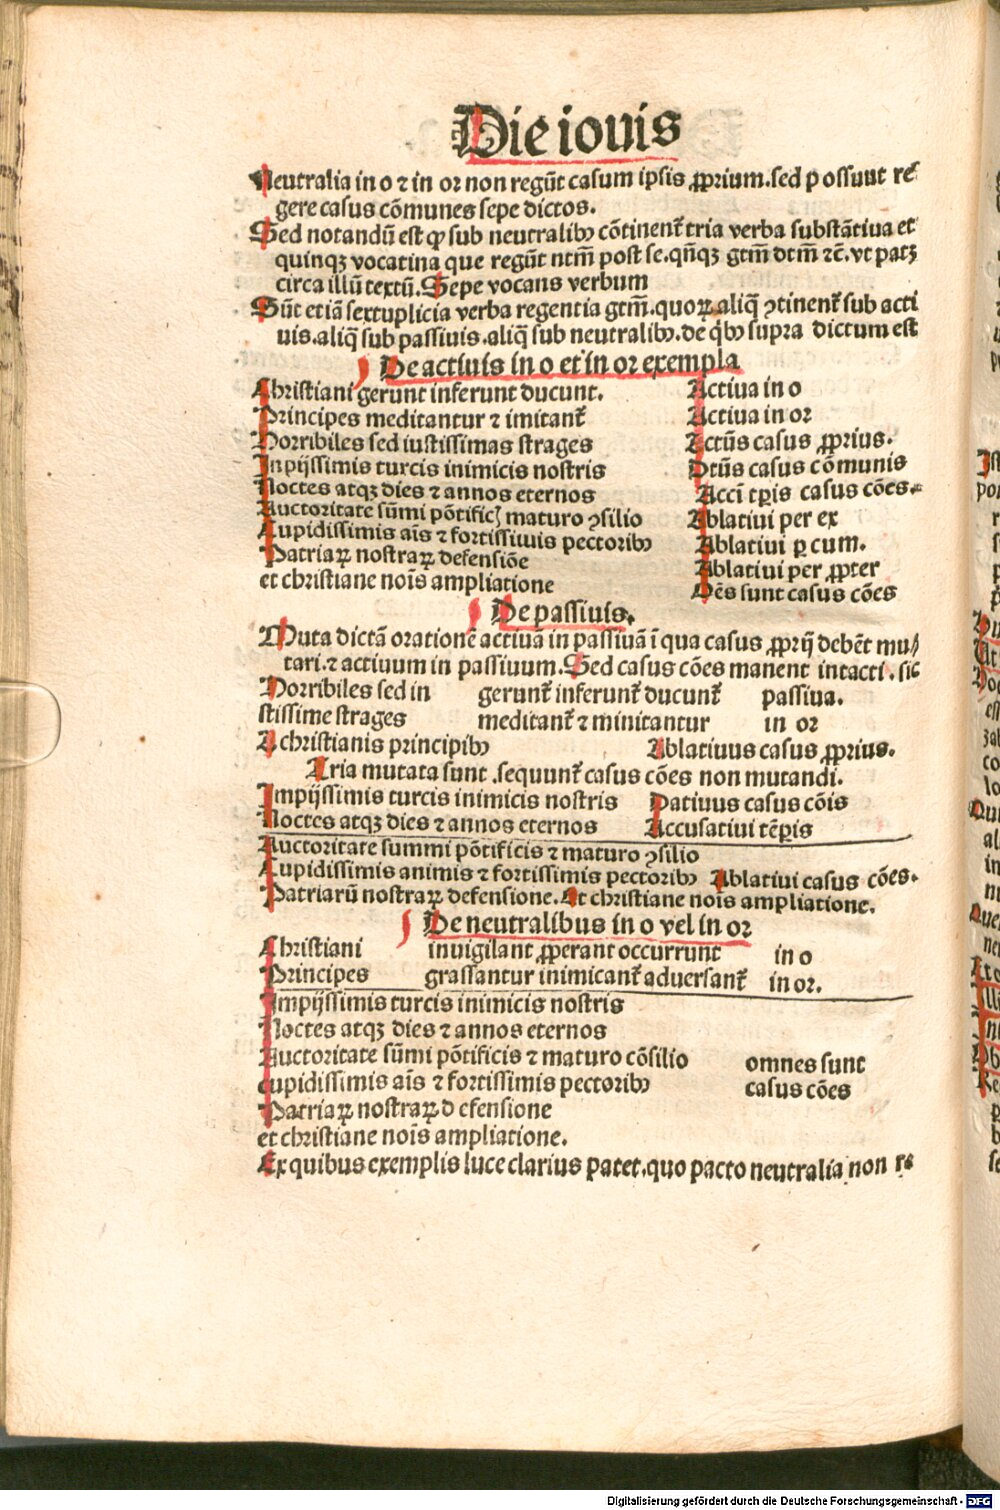 Die iouis
Neutralia in o ⁊ in or non regūt casum ipsis ꝓprium. sed possunt re
gere casus cōmunes sepe dictos.
Sed notandū est ꝙ sub neutralibꝰ cōtinent̄ tria verba substātiua et
quinqꝫ vocatiua que regūt ntm̄ post se. qn̄qꝫ gtm̄ dtm̄ ⁊c̄. vt patꝫ
circa illū textū. Sepe vocans verbum
Sūt etiā sextuplicia verba regentia gtm̄. quoꝝ aliq̄ ꝯtinent̄ sub acti
uis. aliq̄ sub passiuis. aliq̄ sub neutralibꝰ. de qͥbꝰ supra dictum est
De actiuis in o et in or exempla
Christiani gerunt inferunt ducunt. Actiua in o
Principes meditantur ⁊ imitant̄ Actiua in or
Horribiles sed iustissimas strages Actūs casus ꝓprius.
Inpijssimis turcis inimicis nostris Dtūs casus cōmunis
Noctes atqꝫ dies ⁊ annos eternos Acci t̄pis casus cōes.
Auctoritate sūmi pōtific̄ maturo ꝯsilio Ablatiui per ex
Cupidissimis aīs ⁊ fortissiuis pectoribꝰ Ablatiui ꝑ cum.
Patriaꝝ nostraꝝ defensiōe Ablatiui per ꝓpter
et christiane nois̄ ampliatione Oēs sunt casus cōes
De passiuis.
Muta dictā orationē actiuā in passiuā ī qua casus ꝓprij debēt mu/
tari. ⁊ actiuum in passiuum. Sed casus cōes manent intacti. sic
Horribiles sed in gerunt̄ inferunt̄ ducunt̄ passiua.
stissime strages meditant̄ ⁊ minitantur in or
A christianis principibꝰ Ablatiuus casus ꝓprius.
Tria mutata sunt. sequunt̄ casus cōes non mutandi.
Impijssimis turcis inimicis nostris Datiuus casus cōis
Noctes atqꝫ dies ⁊ annos eternos Accusatiui tēꝑis
Auctoritate summi pōtificis ⁊ maturo ꝯsilio
Cupidissimis animis ⁊ fortissimis pectoribꝰ Ablatiui casus cōes.
Patriarū nostraꝝ defensione. Et christiane nois̄ ampliatione.
De neutralibus in o vel in or
Christiani inuigilant ꝓperant occurrunt in o
Principes grassantur inimicant̄ aduersant̄ in or.
Impijssimis turcis inimicis nostris
Noctes atqꝫ dies ⁊ annos eternos
Auctoritate sūmi pōtificis ⁊ maturo cōsilio omnes sunt
cupidissimis aīs ⁊ fortissimis pectoribꝰ casus cōes
Patriaꝝ nostraꝝ defensione
et christiane nois̄ ampliatione.
Ex quibus exemplis luce clarius patet. quo pacto neutralia non re
Digitalisierung gefördert durch die Deutsche Forschungsgemeinschaft - DFG